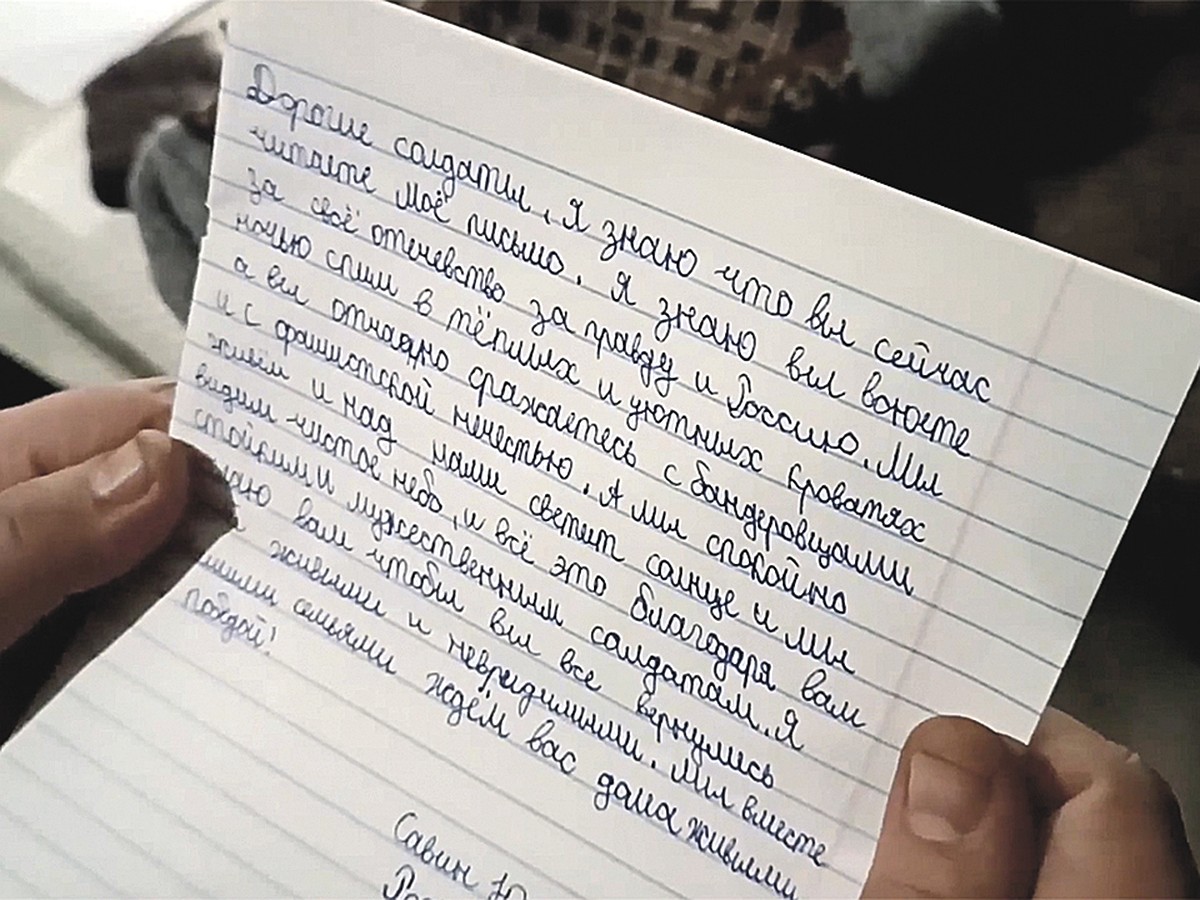 Дорогие солдаты, Я знаю что вы сейчас
читаете моё письмо. Я знаю вы воюете
за своё отечевство за правду и Россию. Мы
ночью спим в тёплых и уютных кроватях
а вы отчаядно сражаетесь с бандеровцами
и с фашистской нечестью. А мы спокойно
живём и над нами светит солнце и мы
видим чистое небо, и всё это благодаря вам
стойким и мужественным солдатам. Я
вам чтобы вы все вернулись
живыми и невредимыми. Мы вместе
семьями ждём вас дома живыми
победой!
Савин Ю